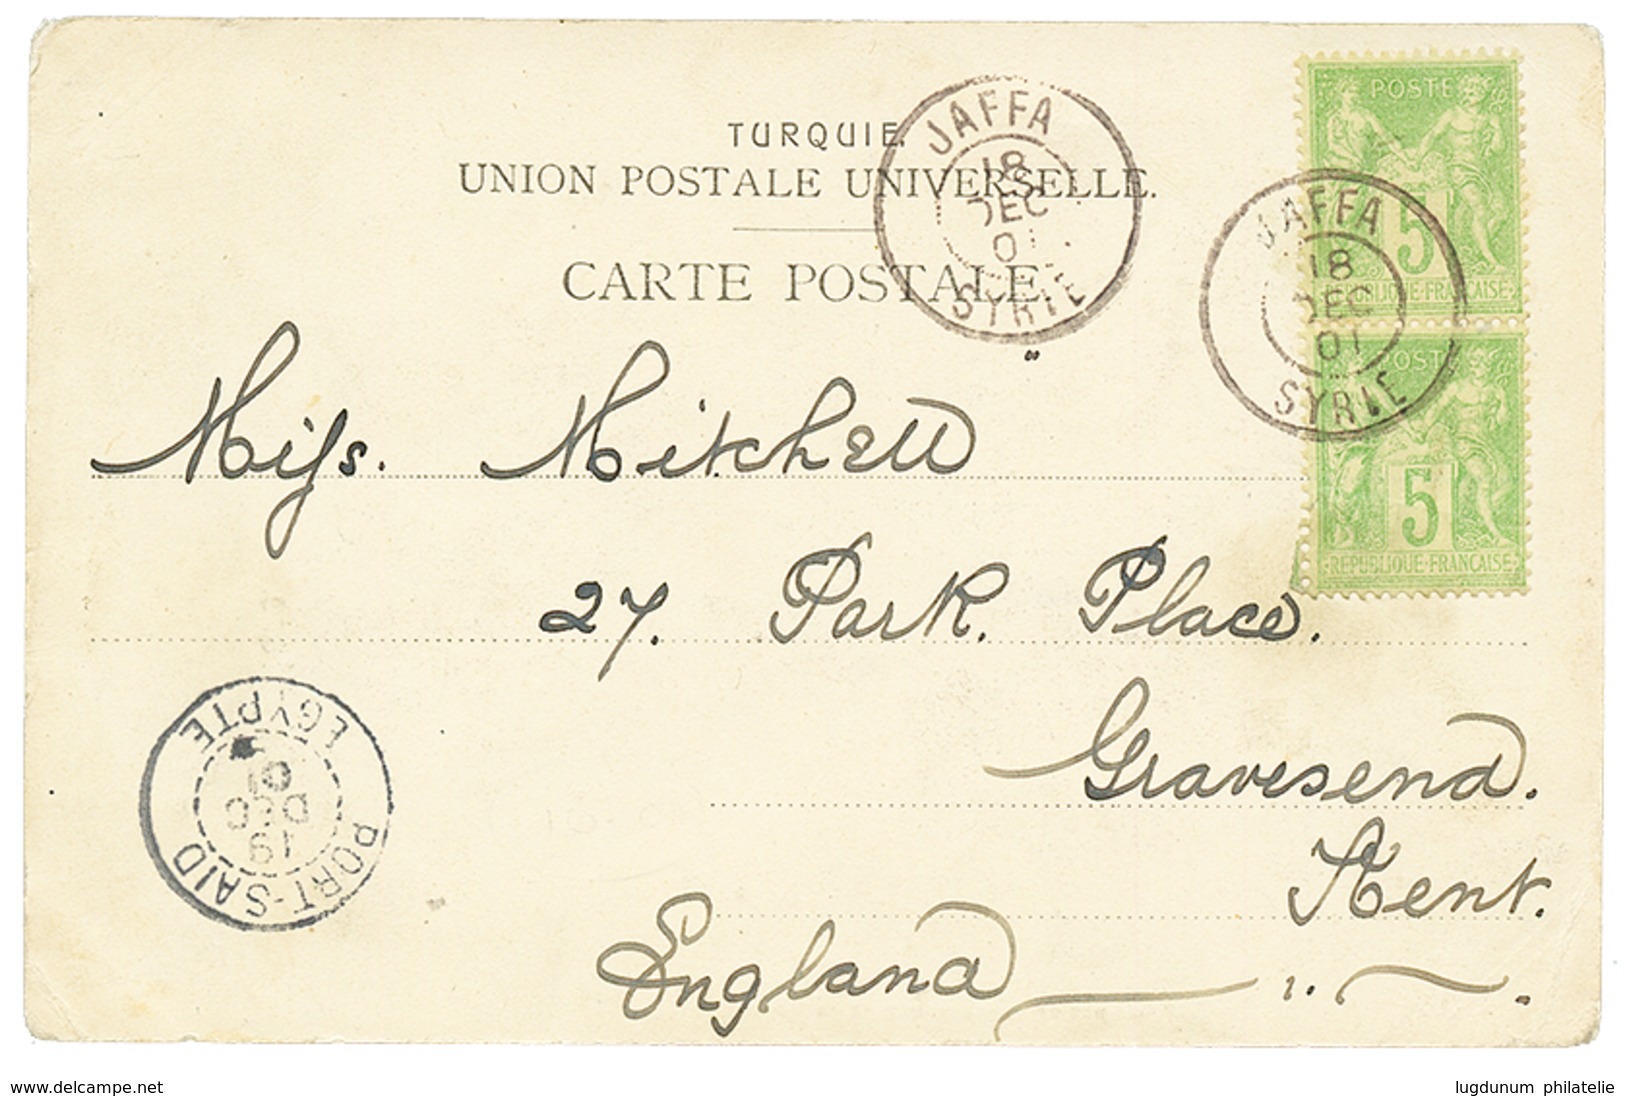 TURQUIE.
UNION POSTALE UNIVERSELLE.
CARTE POSTALE.
JAFFA
18
DEC
01
SYRIE
JAFFA
18
DEC
01
SYRIE
POSTE
5
REPUBLIQUE FRANÇAISE
POSTE
5
REPUBLIQUE FRANÇAISE
Miss. Mitchell
27. Park. Place.
Gravesend.
Kent.
England
PORT-SAID
19
DEC
01
EGYPTE
www.delcampe.net
lugdunum philatelie